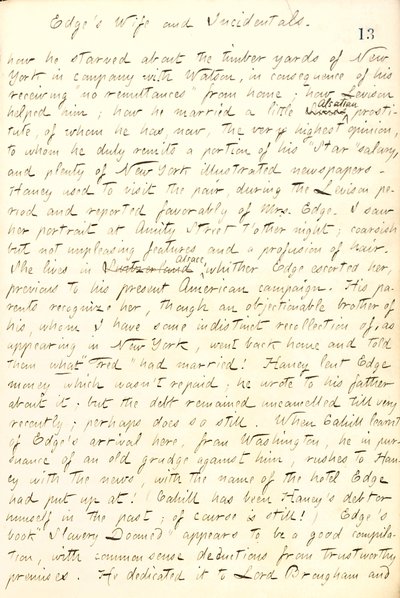 Edge's Wife and Incidentals.
13
how he starved about the timber yards of New
York in company with Watson, in consequence of his
receiving "no remittances" from home; how Levison
helped him; how he married a little Alsatian prosti-
tute, of whom he has, now, the very highest opinion,
to whom he duly remits a portion of his "Star" salary,
and plenty of New York illustrated newspapers.
Haney used to visit the pair, during the Levison pe-
riod and reported favorably of Mrs. Edge. I saw
her portrait at Amity Street t'other night; coarsish
but not unpleasing features and a profusion of hair.
She lives in Switzerland Alsace, whither Edge escorted her,
previous to his present American campaign. His pa-
rents recognize her, though an objectionable brother of
his, whom I have some indistinct recollection of, as
appearing in New York, went back home and told
them what "Fred" had married! Haney lent Edge
money which wasn't repaid; he wrote to his father
about it; but the debt remained uncancelled till very
recently; perhaps does so still. When Cahill learnt
of Edge's arrival here, from Washington, he in pur-
suance of an old grudge against him, rushes to Han-
ey with the news, with the name of the hotel Edge
had put up at! (Cahill has been Haney's debtor
himself in the past; of course is still!) Edge's
book "Slavery Doomed" appears to be a good compila-
tion, with common sense deductions from trustworthy
premises. He dedicated it to Lord Brougham and